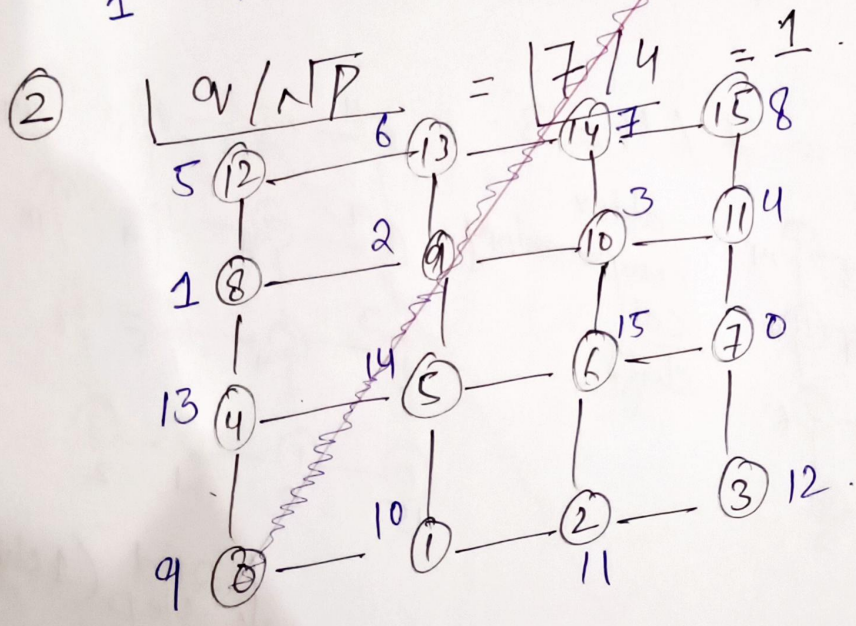 1
② ⌊q/√p⌋ = ⌊7/4⌋ = 1.
5 12 6 13 14 7 15 8
1 8 2 9 10 3 11 4
13 4 14 5 6 15 7 0
9 0 10 1 2 11 3 12.